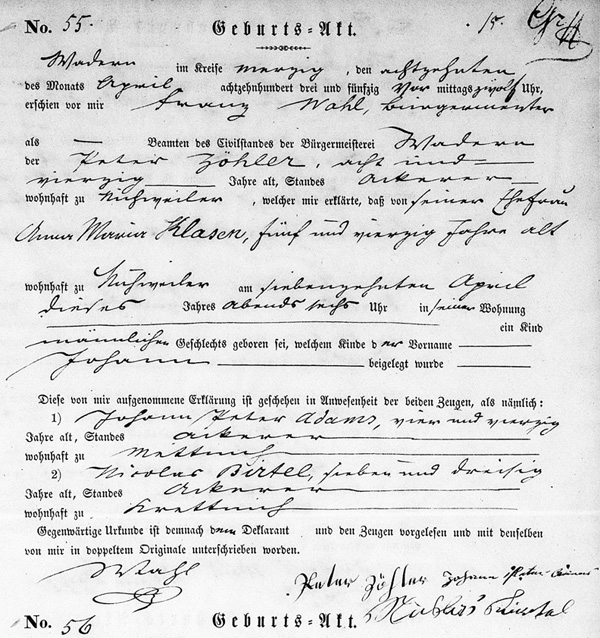 No. 55. Geburts-Akt.
Wadern im Kreise Merzig, den achtzehnten
des Monats April achtzehnhundert drei und fünfzig Vor mittags zwölf Uhr,
erschien vor mir Franz Wahl, Bürgermeister
als — Beamten des Civilstandes der Bürgermeisterei Wadern
der Peter Zöhler, acht und
vierzig Jahre alt, Standes Ackerer
wohnhaft zu Nuhweiler, welcher mir erklärte, daß von seiner Ehefrau
Anna Maria Klasen, fünf und vierzig Jahre alt
wohnhaft zu Nuhweiler am siebenzehnten April
dieses Jahres abends sechs Uhr in seiner Wohnung
ein Kind
männlichen Geschlechts geboren sei, welchem Kinde der Vorname
Johann beigelegt wurde
Diese von mir aufgenommene Erklärung ist geschehen in Anwesenheit der beiden Zeugen, als nämlich:
1) Johann Peter Adams, vier und vierzig
Jahre alt, Standes Ackerer
wohnhaft zu Mettnich
2) Nicolas Birtel, sieben und dreisig
Jahre alt, Standes Ackerer
wohnhaft zu Krettnich
Gegenwärtige Urkunde ist demnach dem Deklarant und den Zeugen vorgelesen und mit denselben
von mir in doppeltem Originale unterschrieben worden.
Wahl
Peter Zöhler Johann Peter
No. 56 Geburts-Akt.